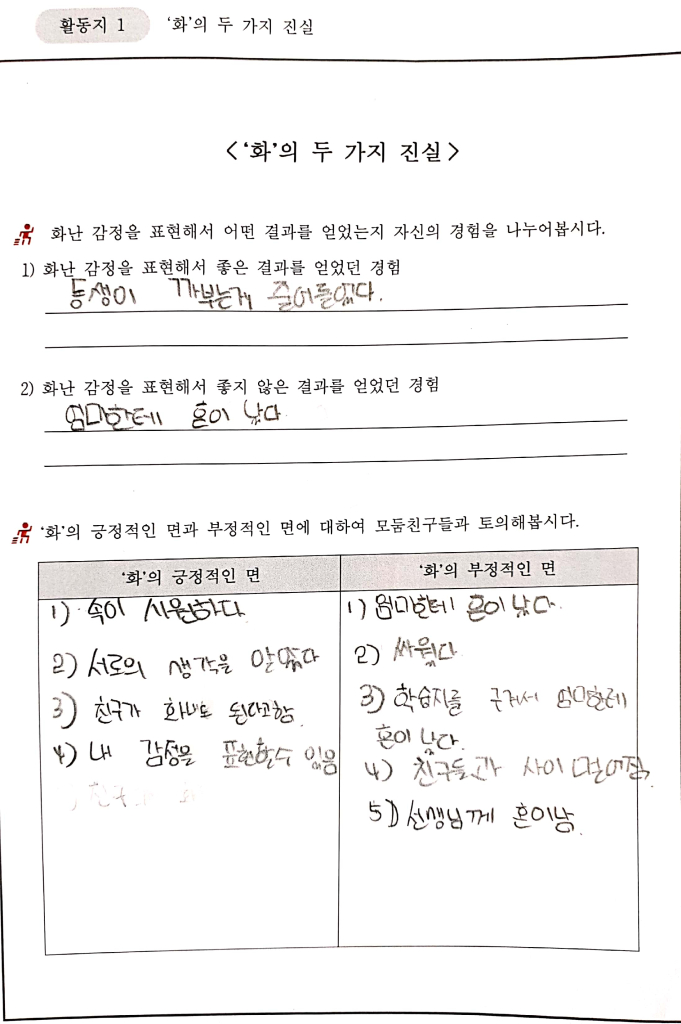 활동지 1 '화'의 두 가지 진실
<'화'의 두 가지 진실>
화난 감정을 표현해서 어떤 결과를 얻었는지 자신의 경험을 나누어봅시다.
1) 화난 감정을 표현해서 좋은 결과를 얻었던 경험
동생이 까부는게 줄어들었다.
2) 화난 감정을 표현해서 좋지 않은 결과를 얻었던 경험
엄마한테 혼이 났다
'화'의 긍정적인 면과 부정적인 면에 대하여 모둠친구들과 토의해봅시다.
'화'의 긍정적인 면
1) 속이 시원하다
2) 서로의 생각을 알았다
3) 친구가 화내도 된다고함
4) 내 감정을 표현할수 있음
'화'의 부정적인 면
1) 엄마한테 혼이 났다
2) 싸웠다
3) 학습지를 구겨서 엄마한테
혼이 났다.
4) 친구들과 사이 멀어짐.
5) 선생님께 혼이남